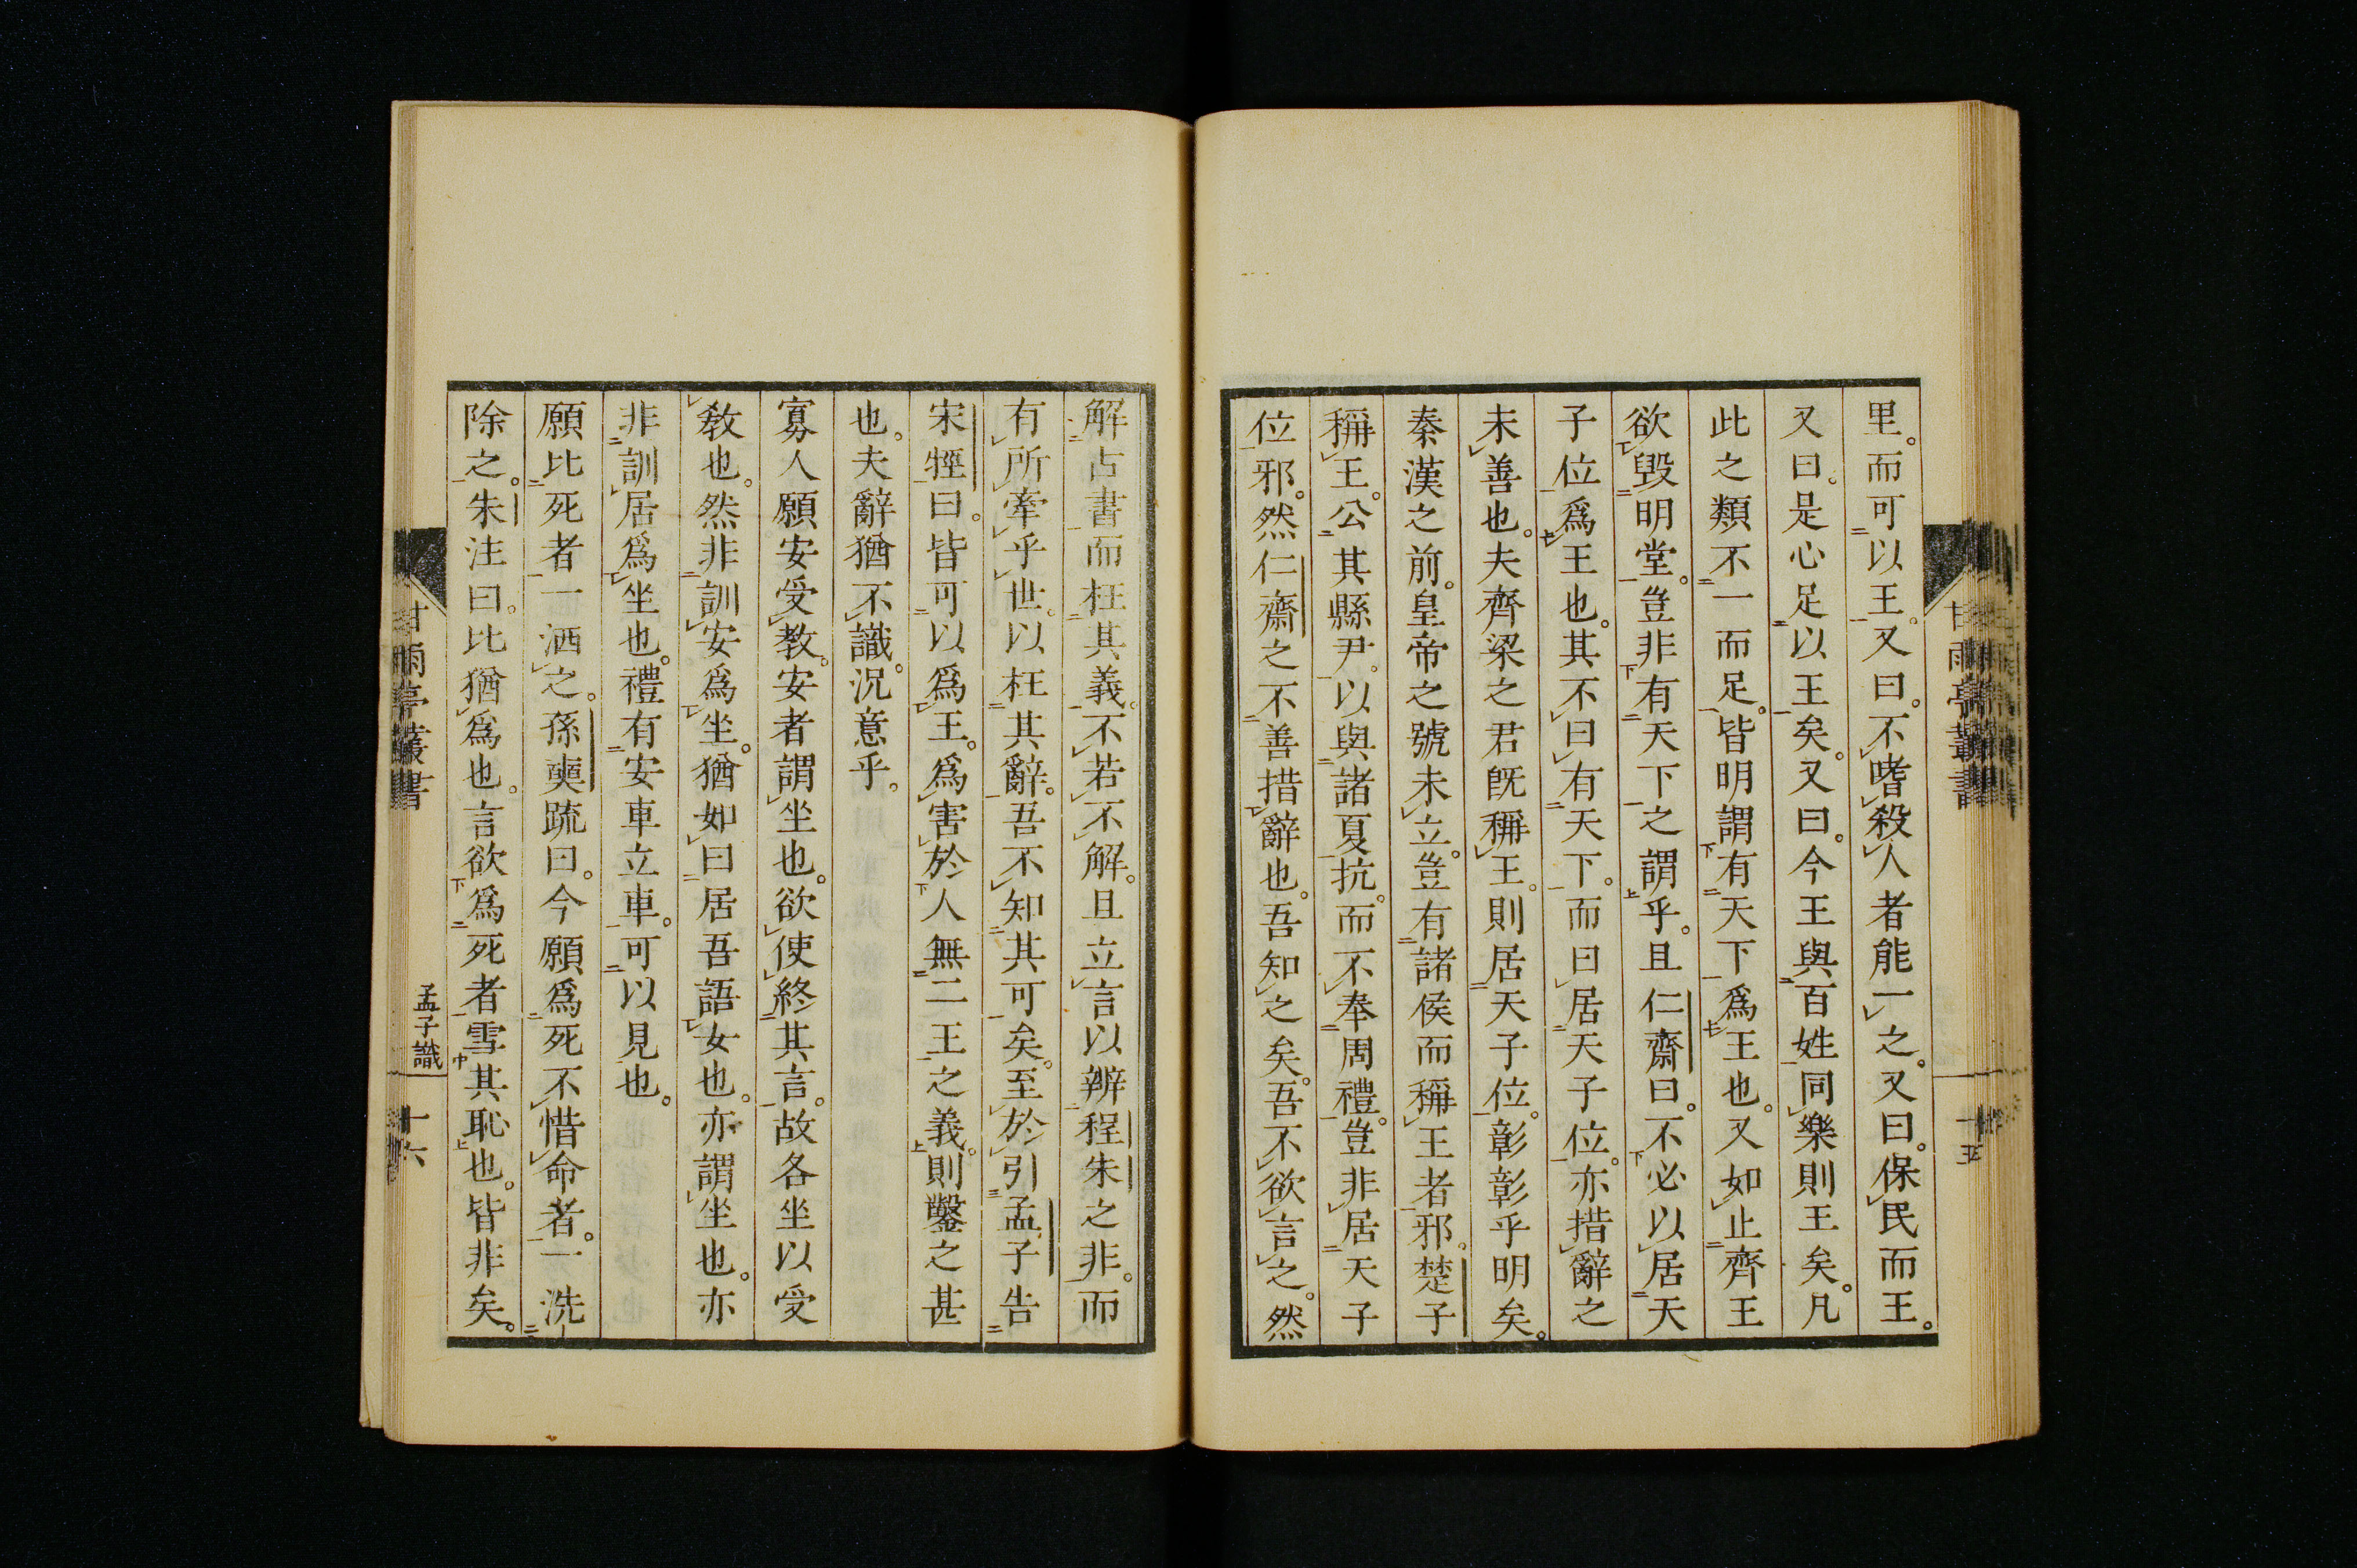 里。而可以王。又曰。不嗜殺人者能一之。又曰。保民而王。
又曰。是心足以王矣。又曰。今王與百姓同樂則王矣。凡
此之類不一而足。皆明謂有天下爲王也。又如止齊王
欲毀明堂。豈非有天下之謂乎。且仁齋曰。不必以居天
子位爲王也。其不曰有天下。而曰居天子位。亦措辭之
未善也。夫齊梁之君既稱王。則居天子位。彰彰乎明矣。
秦漢之前。皇帝之號未立。豈有諸侯而稱王者邪。楚子
稱王。公其縣尹。以與諸夏抗。而不奉周禮。豈非居天子
位邪。然仁齋之不善措辭也。吾知之矣。吾不欲言之。然
甘雨亭叢書
十五
解古書而枉其義。不若不解。且立言以辨程朱之非。而
有所牽乎世。以枉其辭。吾不知其可矣。至於引孟子告
宋牼曰。皆可以爲王。爲害於人無二王之義。則鑿之甚
也。夫辭猶不識。況意乎。
寡人願安受教。安者謂坐也。欲使終其言。故各坐以受
教也。然非訓安爲坐。猶如曰居吾語女也。亦謂坐也。亦
非訓居爲坐也。禮有安車立車。可以見也。
願比死者一洒之。孫奭疏曰。今願爲死不惜命者。一洗
除之。朱注曰。比猶爲也。言欲爲死者雪其恥也。皆非矣。
甘雨亭叢書
孟子識
十六